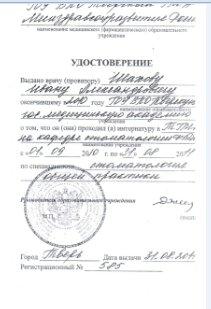 ГОУ ВПО Тверская ГМА
Минздравсоцразвития России
наименование медицинского (фармацевтического) образовательного
учреждения
УДОСТОВЕРЕНИЕ
Выдано врачу (провизору) Шахову
Ивану Александровичу
окончившему в 2010 году ГОУ ВПО
гос. медицинскую академию
о том, что он (она) проходил (а) интернатуру в ТГМА,
на кафедре стоматологии
наименование учреждения
с 01.09 2010 г. по 31.08 2011
по специальности стоматология
общей практики
Руководитель образовательного учреждения
М.П.
Город Тверь Дата выдачи 31.08.2011
Регистрационный № 585